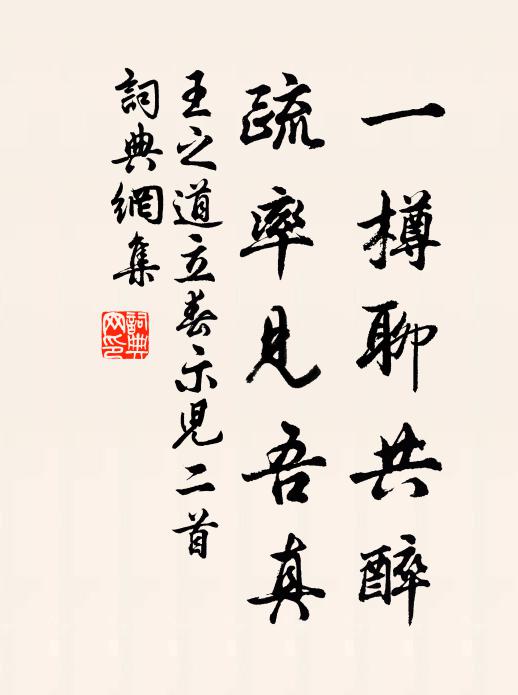 一樽聊共醉
疏率見吾真
王之道立春示兒二首
詞典網集
詞典網印